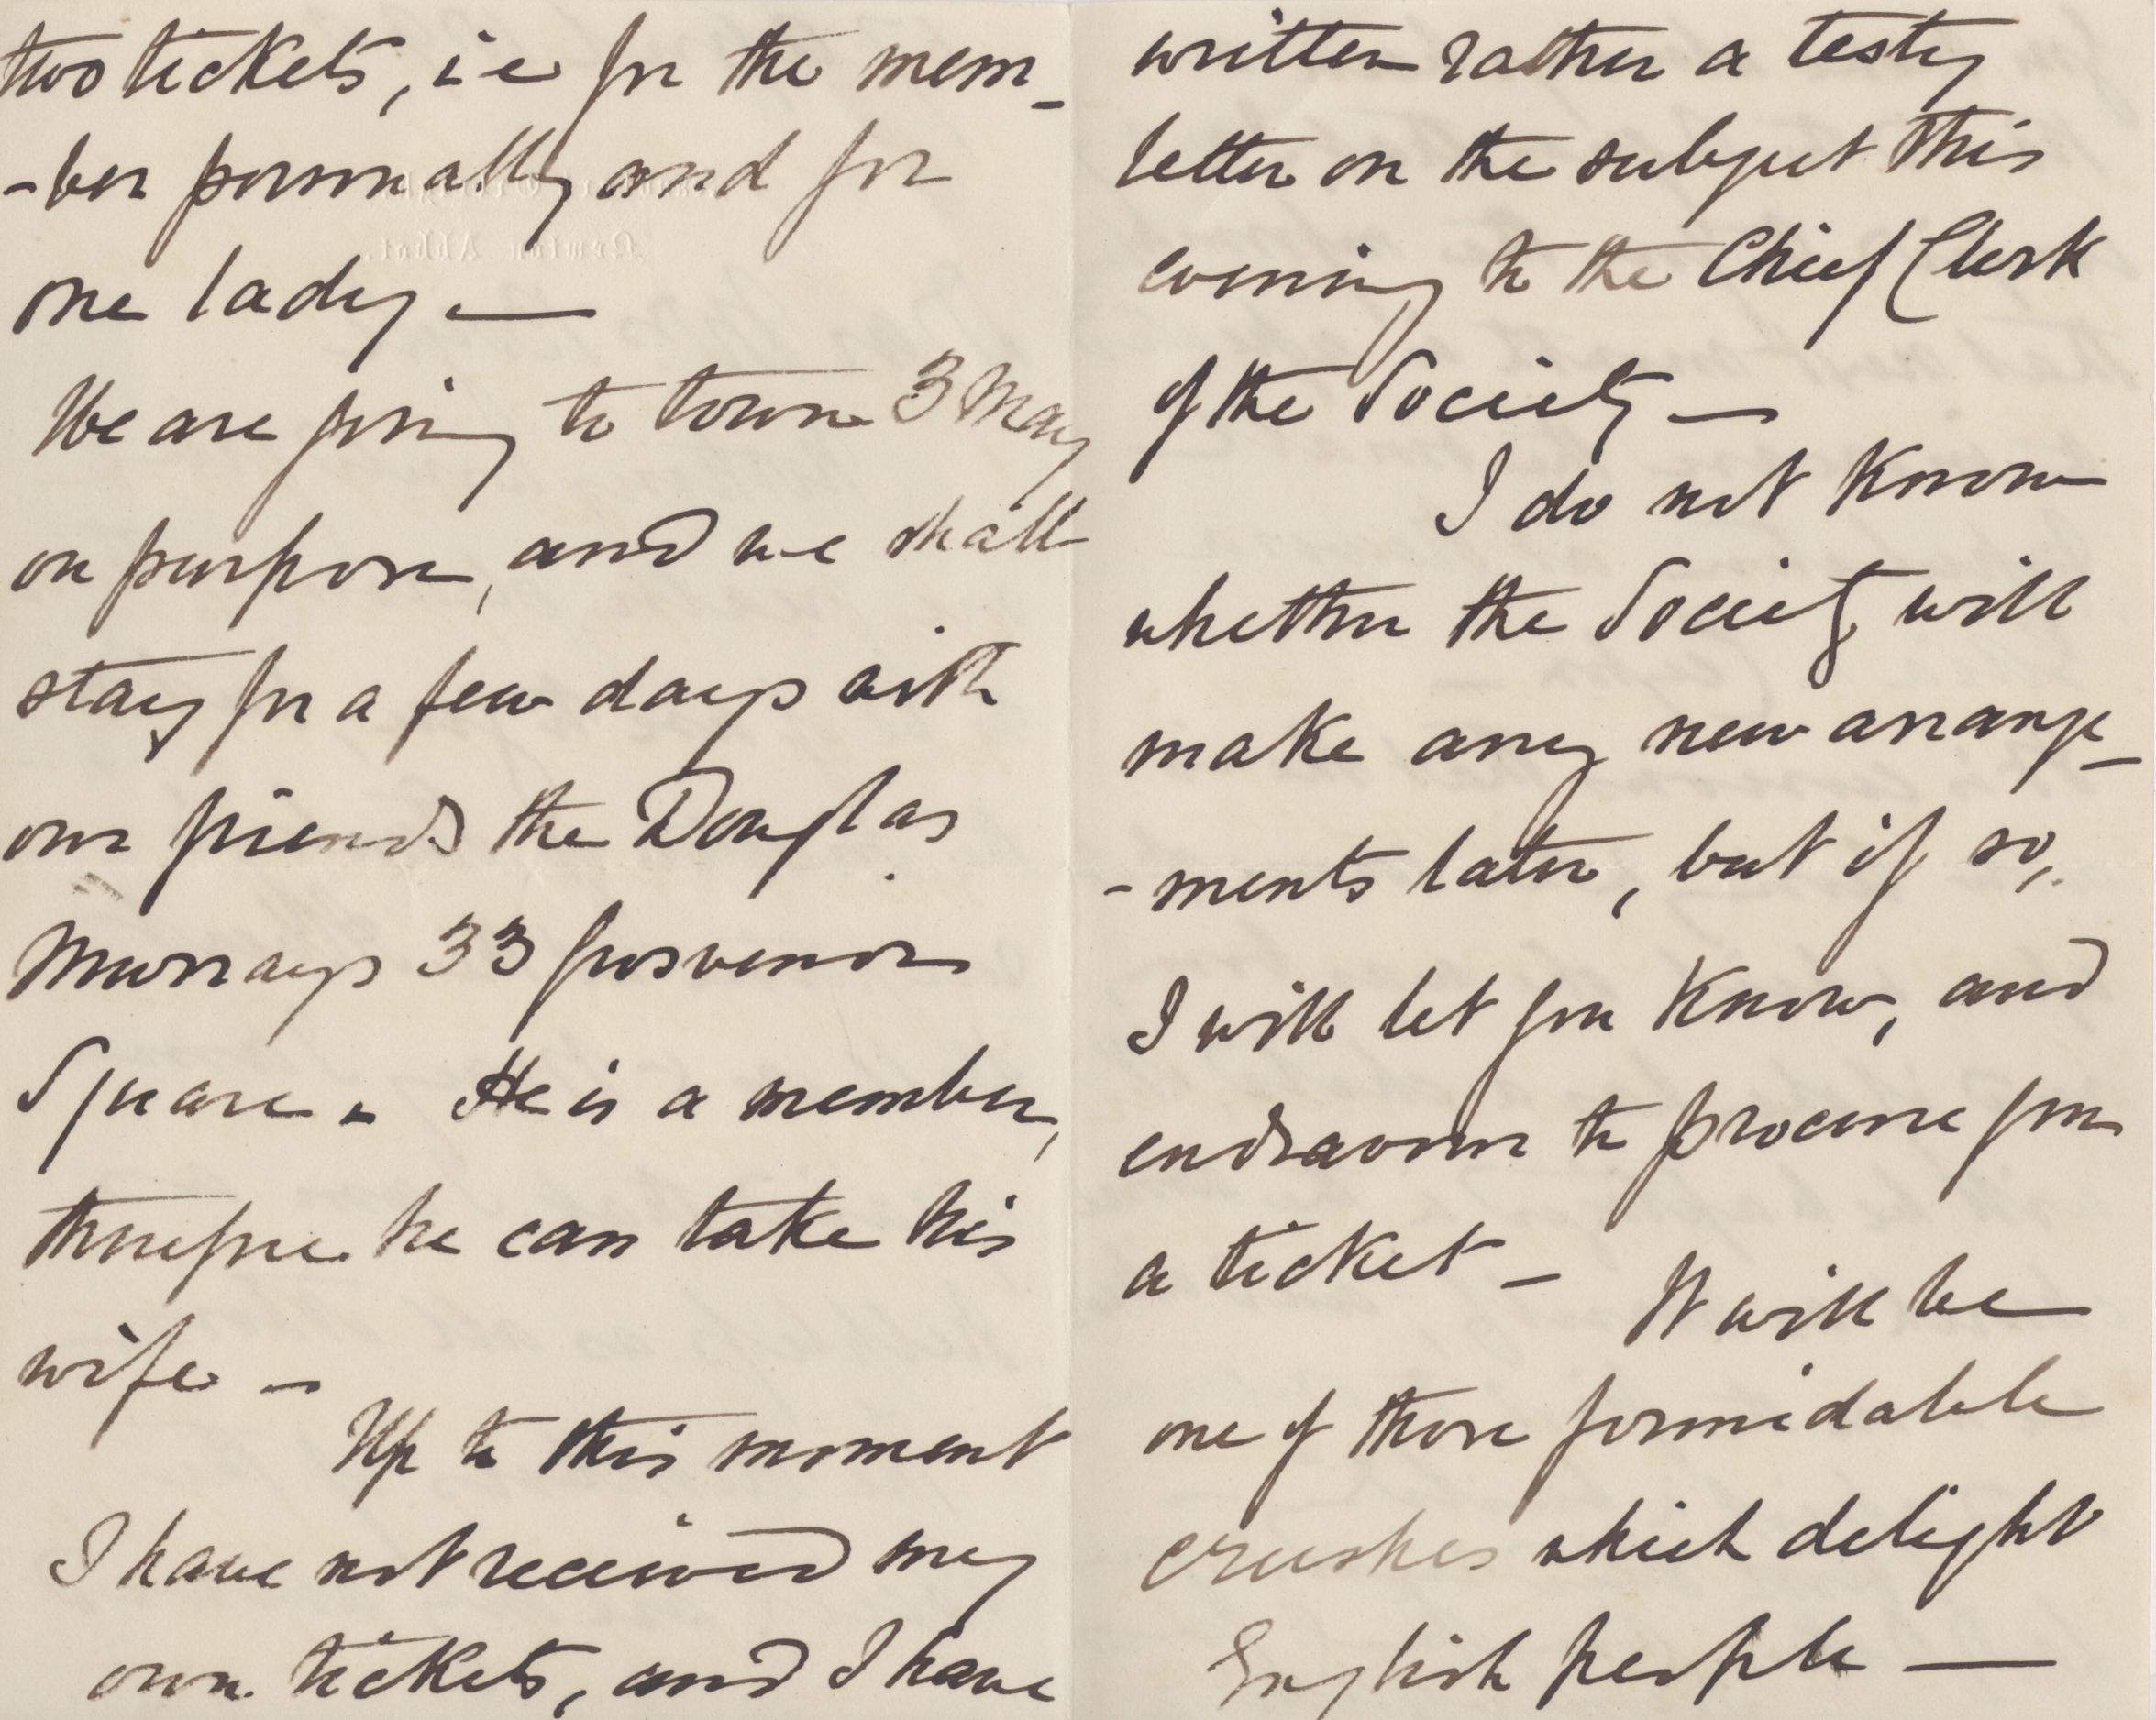 two tickets, i e for the mem-
-ber personally and for
one lady —
We are going to town 3 May
on purpose, and we shall
stay for a few days with
our friends the Douglas
Murrays 33 Grosvenor
Square. He is a member,
therefore he can take his
wife —
Up to this moment
I have not received my
own tickets, and I have
written rather a testy
letter on the subject this
evening to the Chief Clerk
of the Society —
I do not know
whether the Society will
make any new arrange-
-ments later, but if so,
I will let you know, and
endeavour to procure you
a ticket — It will be
one of those formidable
crushes which delight
English people —
Newton Abbot.